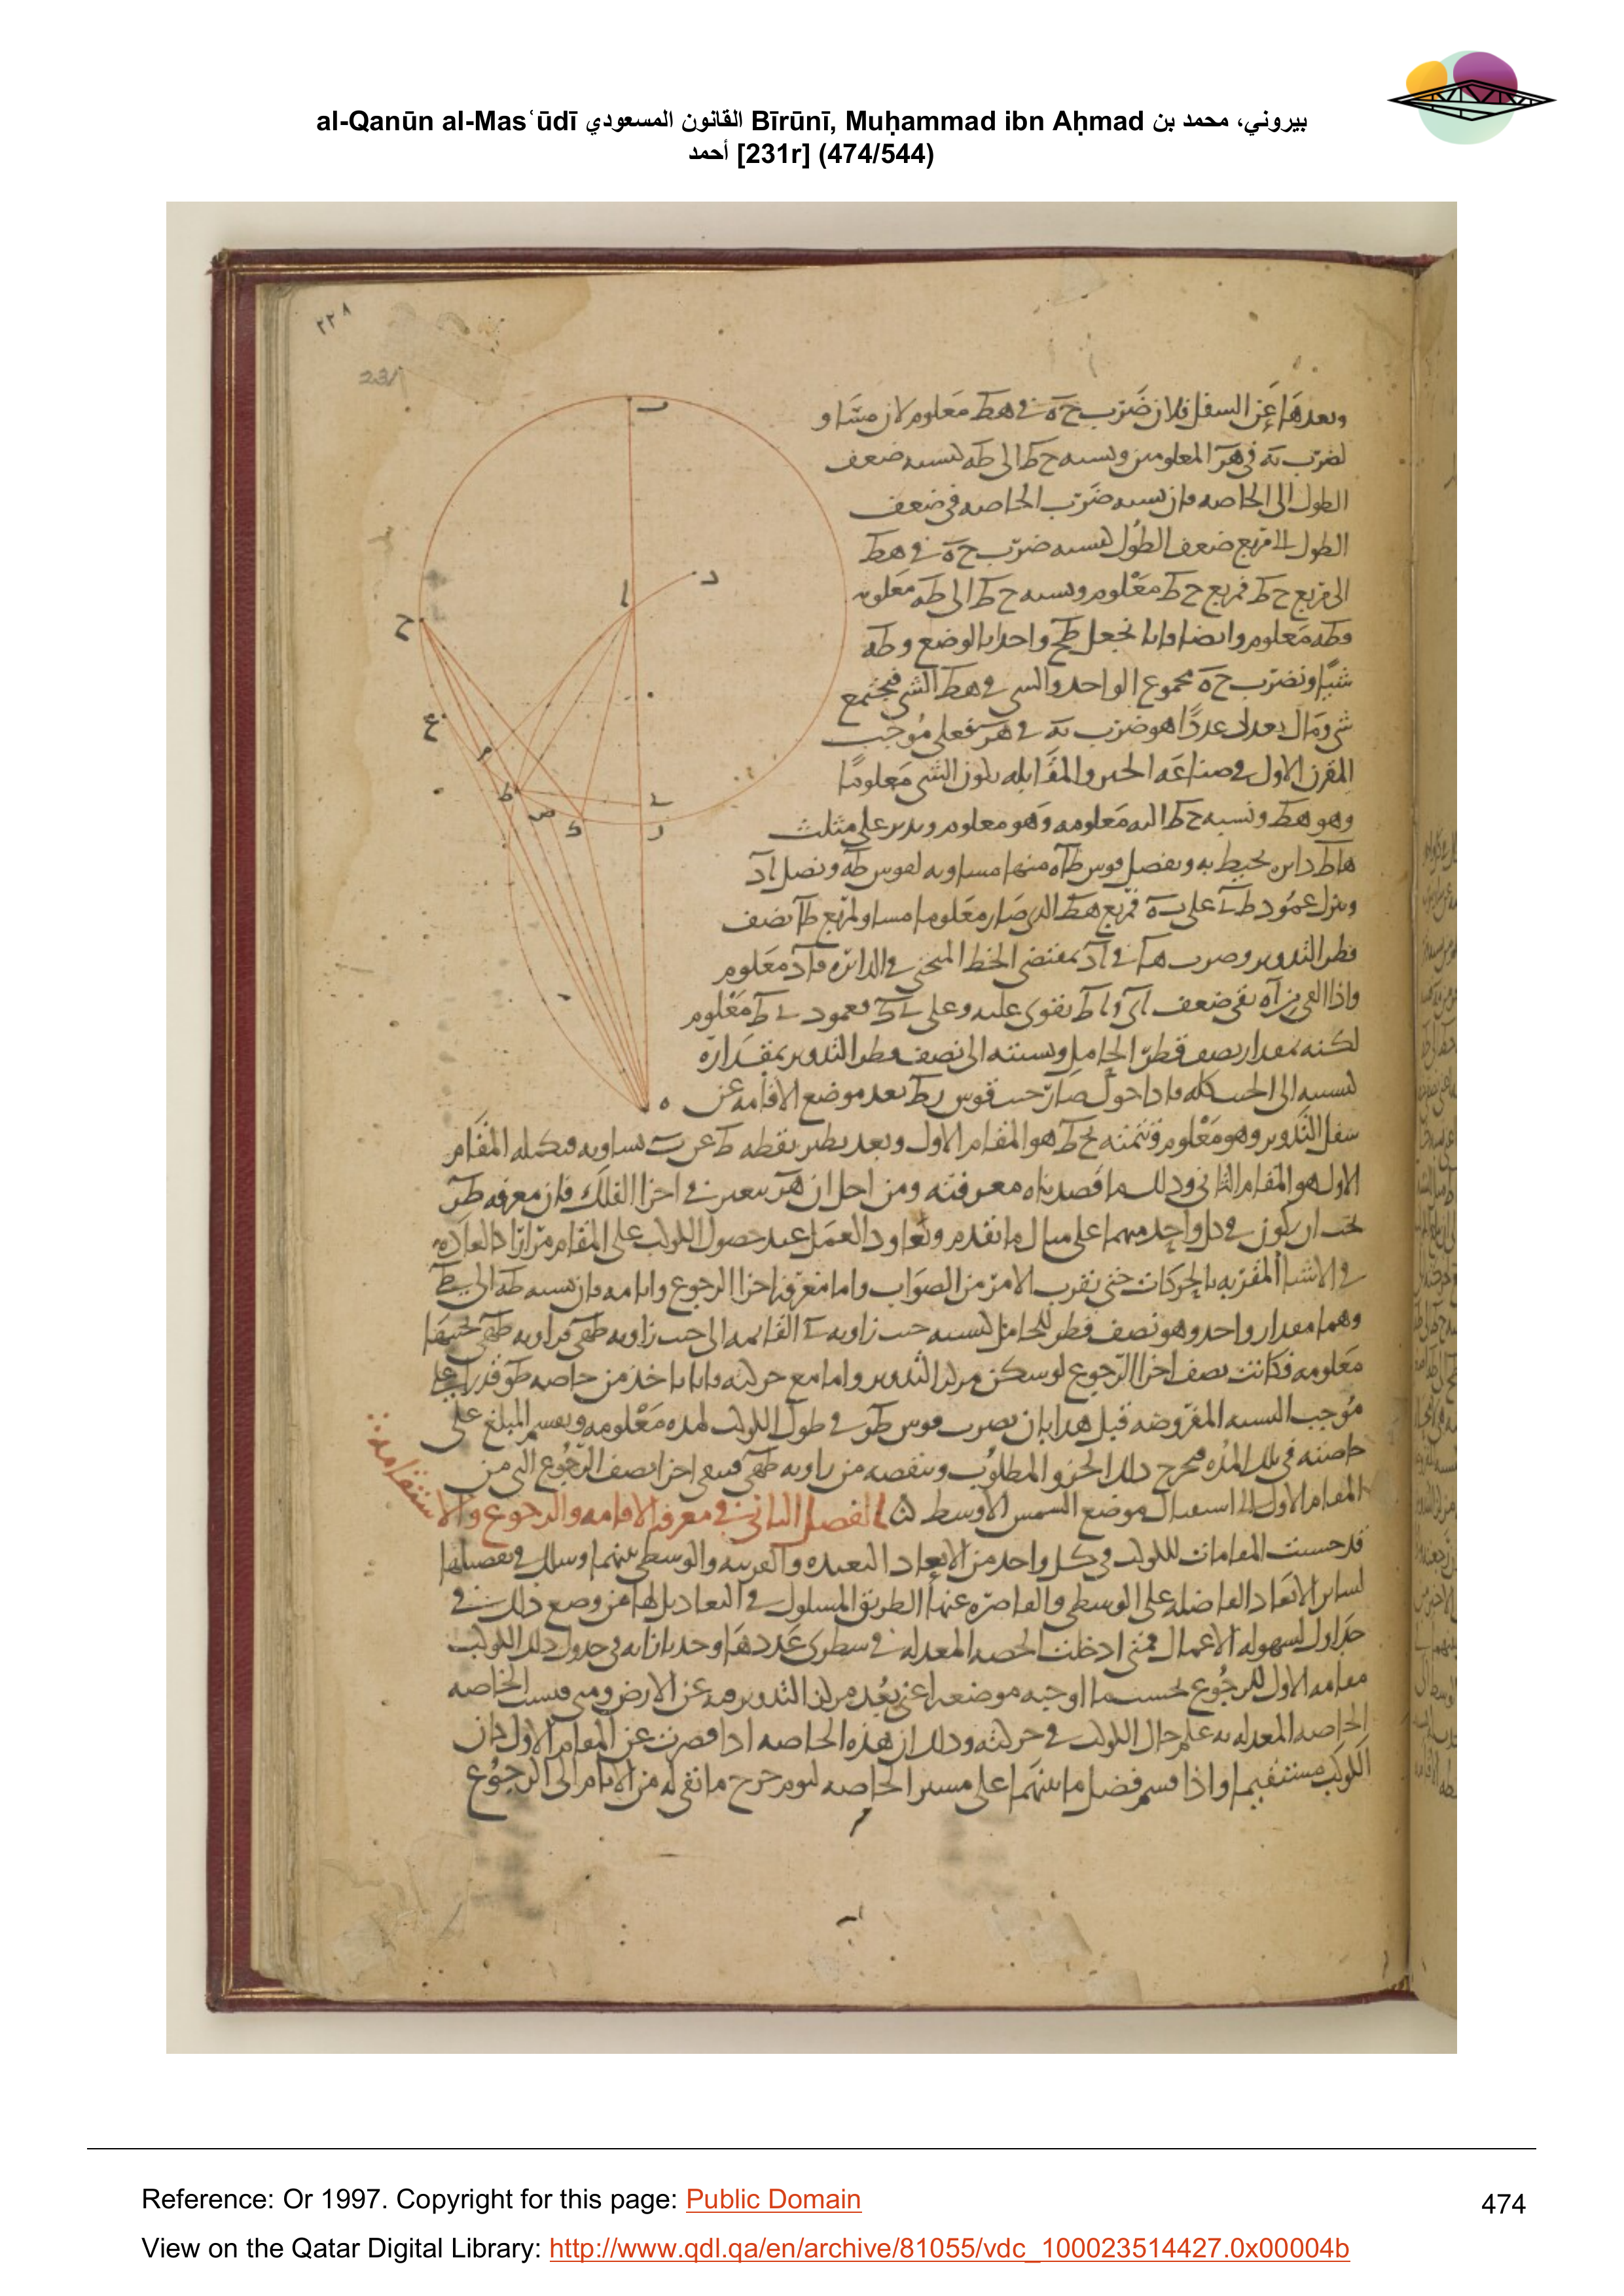 al-Qanūn al-Masʿūdī القانون المسعودي Bīrūnī, Muḥammad ibn Aḥmad بيروني، محمد بن
أحمد [231r] (474/544)
٢٢٨
231
وبعدها عن السفل فلان ضرب ح ه في هط معلوم لان مساو
لضرب به في هر المعلومين ونسبه ح ط الى طه كنسبه ضعف
الطول الى الخاصه فان نسبه ضرب الخاصه في ضعف
الطول الى مربع ضعف الطول كنسبه ضرب ح ه في هط
الى مربع ح ط فمربع ح ط معلوم ونسبه ح ط الى طه معلومه
فطه معلوم وايضا فانا نجعل طح واحدا بالوضع وطه
شيا ونضرب ح ه مجموع الواحد والشى في هط الشى فيجتمع
شى ومال يعدل عددا هو ضرب به في هر فعلى موجب
المقرن الاول في صناعه الجبر والمقابله يكون الشى معلوما
وهو هط ونسبه ح ط اليه معلومه وهو معلوم وندير على مثلث
هاط دايره تحيط به ونفصل قوس طاد منها مساويه لقوس طه ونصل اد
وننزل عمود طى على به فمربع هط الذى صار معلوما مساو لمربع طا نصف
قطر التدوير وضرب ها في اد بمقتضى الخط المنحنى في الدائره فاد معلوم
واذا القى من اه بقى ضعف اى واط يقوى عليه وعلى ى ط فعمود ى ط معلوم
لكنه بمقدار نصف قطر الحامل ونسبته الى نصف قطر التدوير بمقداره
كنسبته الى الجيب كله فاذا حول صار جيب قوس رط بعد موضع الاقامه عن
سفل التدوير وهو معلوم وتتمته بح ط هو المقام الاول وبعد نظير نقطه ط عن ب يساويه فتكمله المقام
الاول هو المقام الثانى وذلك ما قصدناه معرفته ومن اجل ان هر يتغير في اجزا الفلك فان معرفه
يجب ان يكون في كل واحد منهما على مثال ما تقدم ونعاود العمل عند حصول الكوكب على المقام مرارا كالعاده
في الاشيا المقتربه بالحركات حتى يقرب الامر من الصواب واما معرفه اجزا الرجوع وايامه فان نسبه طه الى
وهما بمقدار واحد وهو نصف قطر الحامل كنسبه جيب زاويه ى القائمه الى جيب زاويه طهى فزاويه طهى
معلومه فكانت نصف اجزا الرجوع لو سكن مركز التدوير واما مع حركته فانا ناخذ من خاصه
موجب النسبه المفروضه قبل هذا بان نضرب قوس طر في طول الكوكب لمده معلومه ونقسم المبلغ على
خاصته في تلك المده فيخرج ذلك الجزو المطلوب وننقصه من زاويه طهى فيبقى اجزا نصف الرجوع التى من
المقام الاول الى استقبال موضع الشمس الاوسط الفصل الثانى في معرفه الاقامه والرجوع والاستقامه
قد حسبت المقامات للكوكب في كل واحد من الابعاد البعيده والقريبه والوسطى بينهما وسلك في تفصيلها
لساير الابعاد الفاضله على الوسطى والقاصره عنها الطريق المسلوك في التعاديل لها من وضع ذلك في
جداول لسهوله الاعمال فمتى ادخلت الحصه المعدله في سطرى عددها وجد بازايه في جدول ذلك الكوكب
مقامه الاول للرجوع بحسب ما اوجبه موضعه اعنى بعد مركز التدوير فيه عن الارض ومتى قيست الخاصه
الخاصه المعدله به علم حال الكوكب في حركته وذلك ان هذه الخاصه اذا قصرت عن المقام الاول كان
الكوكب مستقيما واذا قسم فضل ما بينهما على مسير الخاصه ليوم خرج ما بقى له من الايام الى الرجوع
Reference: Or 1997. Copyright for this page: Public Domain
474
View on the Qatar Digital Library: http://www.qdl.qa/en/archive/81055/vdc_100023514427.0x00004b